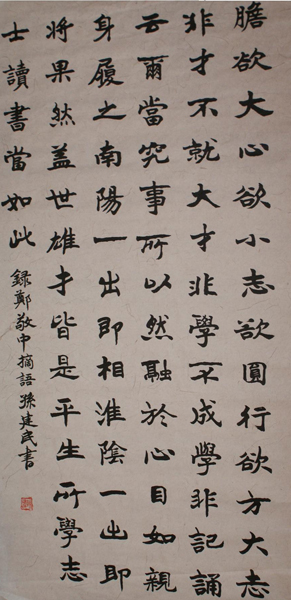 膽欲大心欲小志欲圓行欲方大志
非才不就大才非學不成學非記誦
云爾當究事所以然融於心目如親
身履之南陽一出即相淮陰一出即
將果然蓋世雄才皆是平生所學志
士讀書當如此
録鄭敬中摘語孫建民書